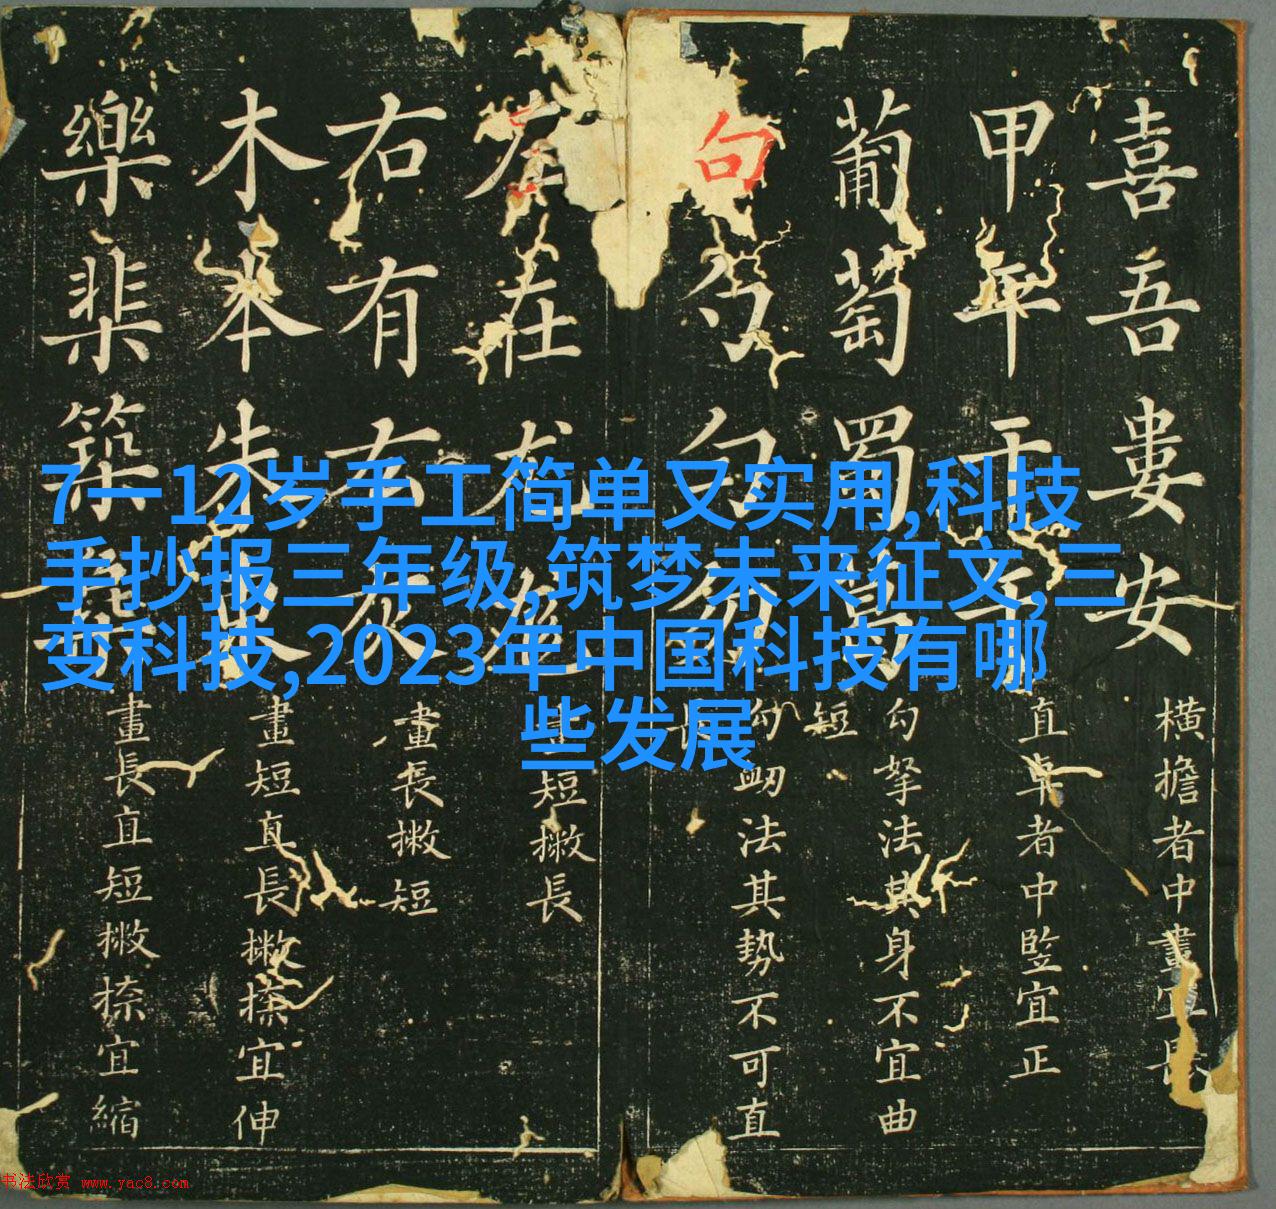 7一12岁手工简单又实用,科技
手抄报三年级,筑梦未来征文,三
变科技,2023年中国科技有哪
些发展
喜吾婁安
横擔者中畫宜長
甲平干
直卓者中竪宜正
葡萄蜀
短勾拏法其身不宜曲
句勺勾勿
勾法其势不可直
左在尤
畫短撇長
右有灰
畫長撇短
木本朱
畫短直長撇捺宜伸
樂棐築
畫長直短撇捺宜縮
书法欣赏 www.yac8.com